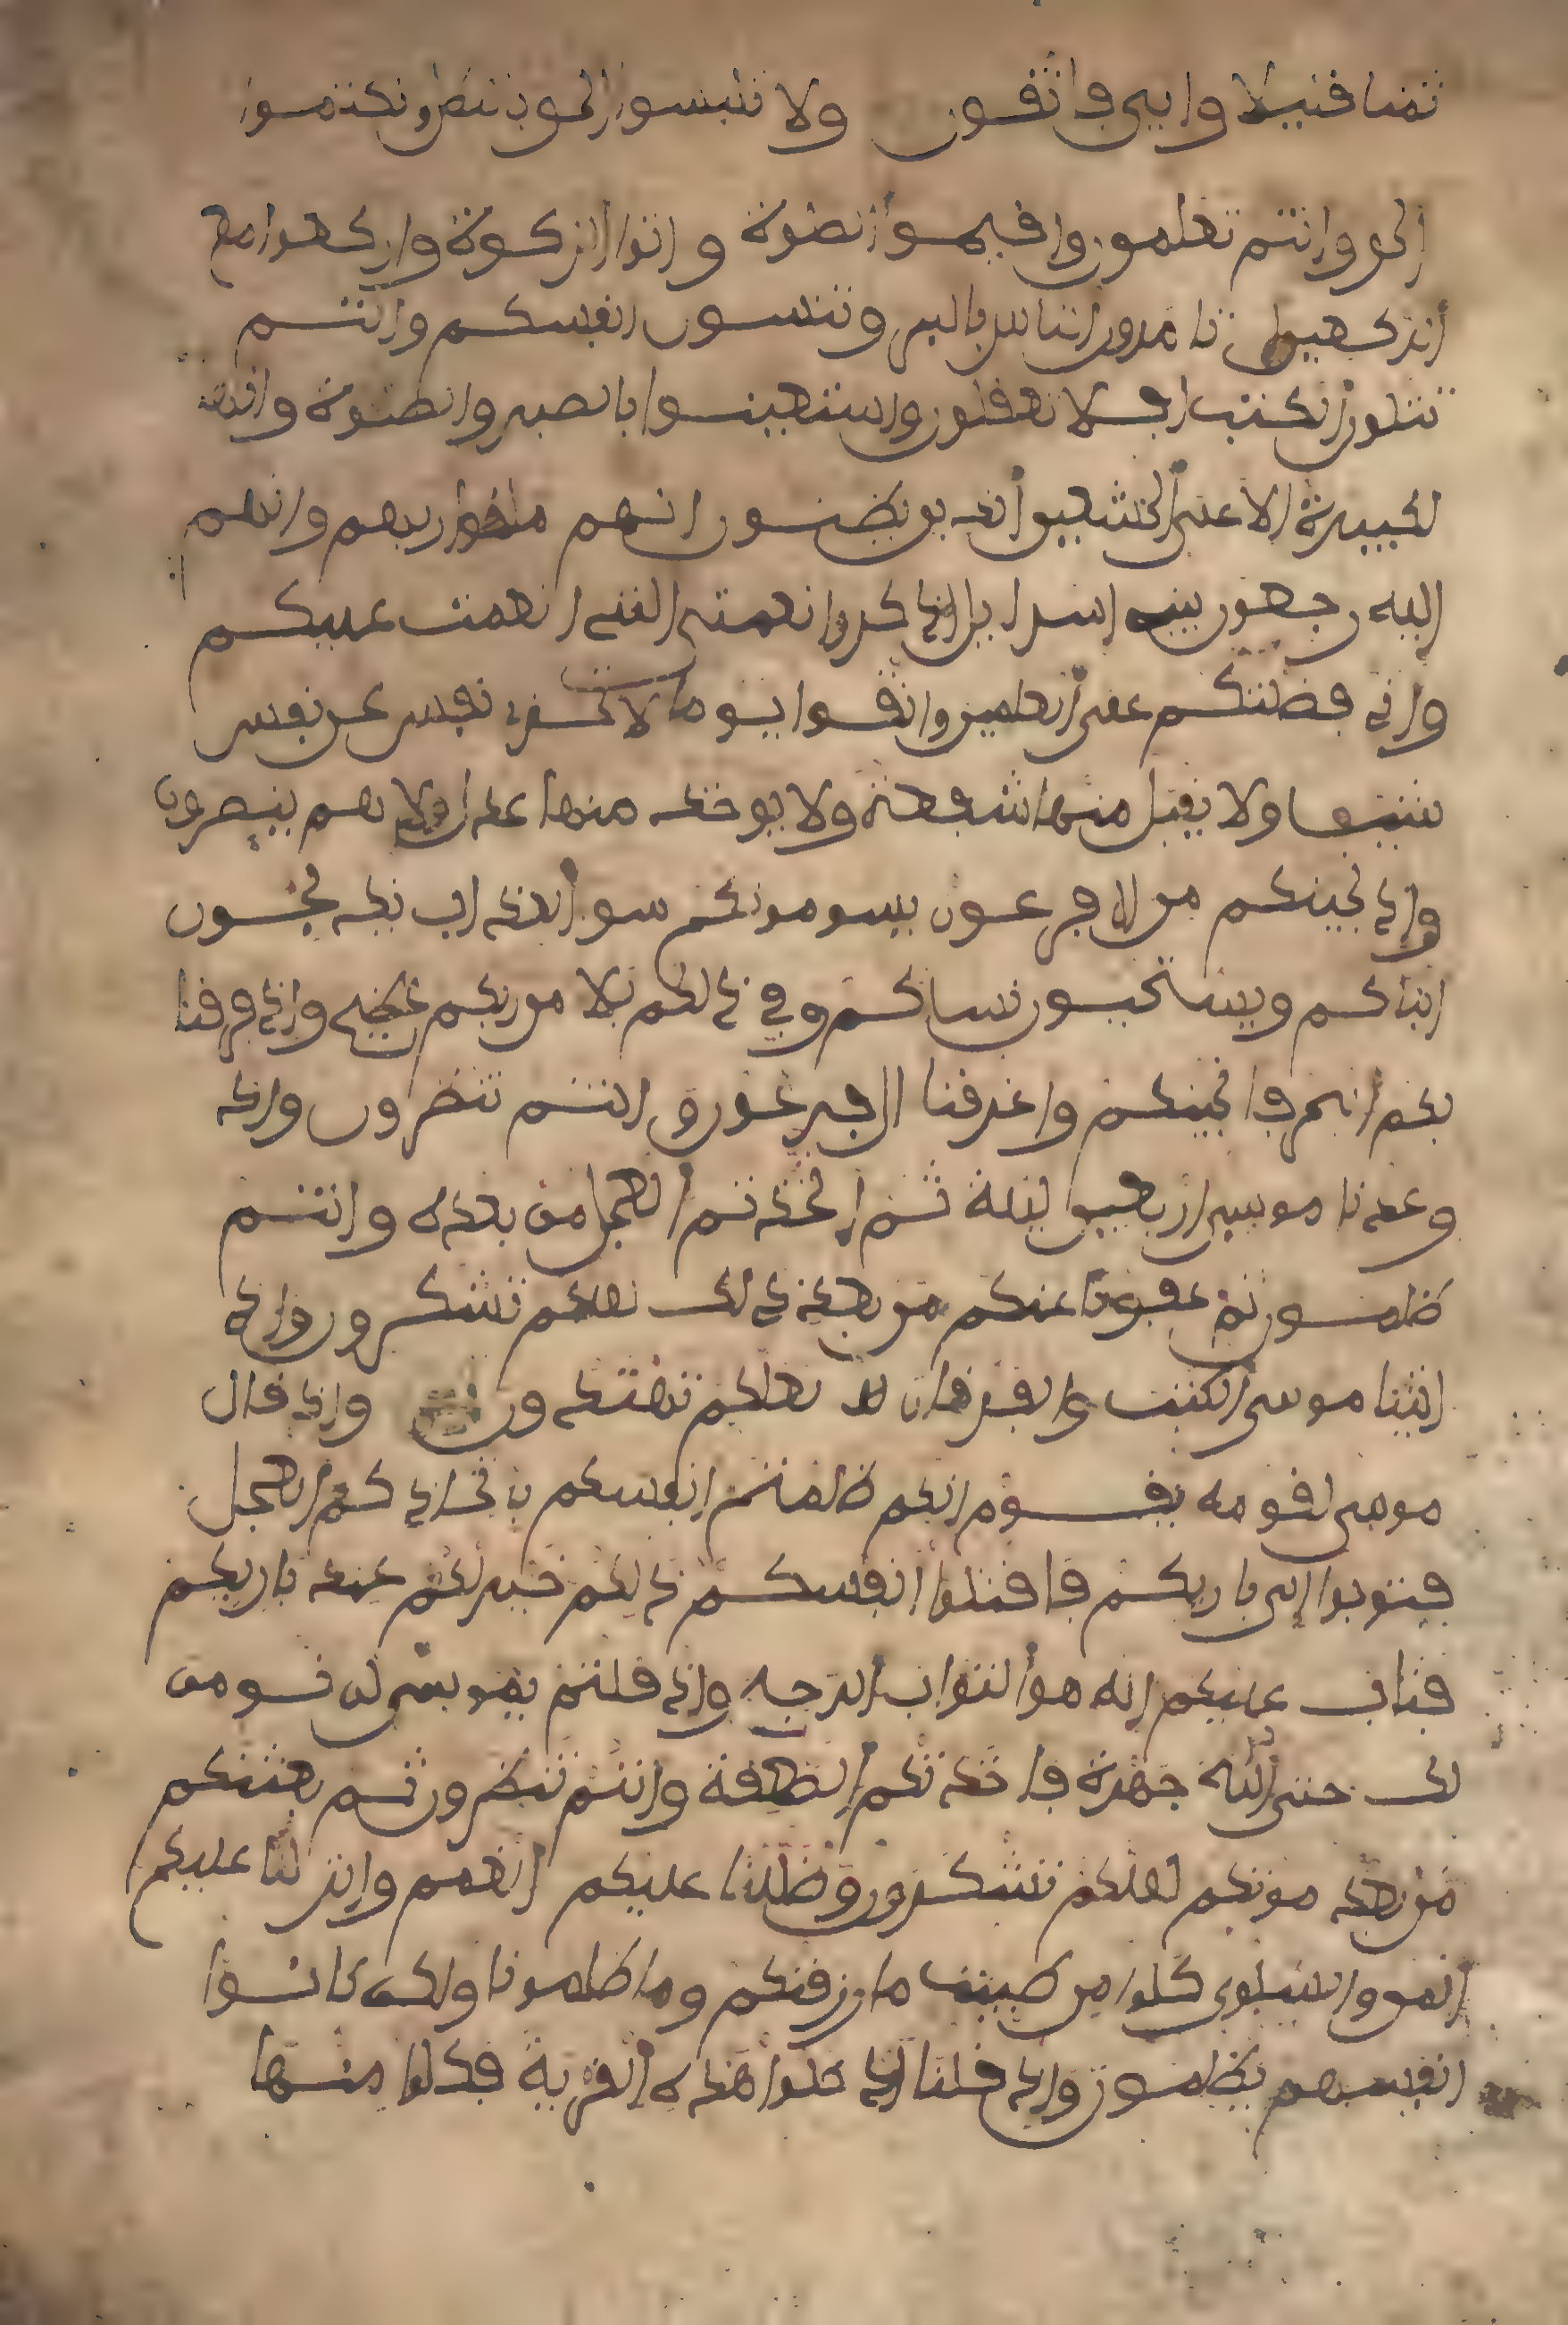 ثمنا قليلا وايى فاتقون ولا تلبسوا الحق بالبطل وتكتموا
الحق وانتم تعلمون واقيموا الصلوة واتوا الزكوة واركعوا مع
الركعين اتامرون الناس بالبر وتنسون انفسكم وانتم
تتلون الكتب افلا تعقلون واستعينوا بالصبر والصلوة وانها
لكبيرة الا على الخشعين الذين يظنون انهم ملقوا ربهم وانهم
اليه رجعون يبنى اسراءيل اذكروا نعمتى التى انعمت عليكم
وانى فضلتكم على العلمين واتقوا يوما لا تجزى نفس عن نفس
شيئا ولا يقبل منها شفعة ولا يوخذ منها عدل ولا هم ينصرون
واذ نجينكم من ال فرعون يسومونكم سو العذاب يذبحون
ابناكم ويستحيون نساكم وفي ذلكم بلا من ربكم عظيم واذ فرقنا
بكم البحر فانجينكم واغرقنا ال فرعون وانتم تنظرون واذ
وعدنا موسى اربعين ليلة ثم اتخذتم العجل من بعده وانتم
ظلمون ثم عفونا عنكم من بعد ذلك لعلكم تشكرون واذ
اتينا موسى الكتب والفرقان لعلكم تهتدون واذ قال
موسى لقومه يقوم انكم ظلمتم انفسكم باتخاذكم العجل
فتوبوا الى باريكم فاقتلوا انفسكم ذلكم خير لكم عند باريكم
فتاب عليكم انه هو التواب الرحيم واذ قلتم يموسى لن نومن
لك حتى الله جهرة فاخذتكم الصعقة وانتم تنظرون ثم بعثنكم
من بعد موتكم لعلكم تشكرون وظللنا عليكم الغمم وانزلنا عليكم
المن والسلوى كلوا من طيبت ما رزقنكم وما ظلمونا ولكن كانوا
انفسهم يظلمون واذ قلنا ادخلوا هذه القرية فكلوا منها